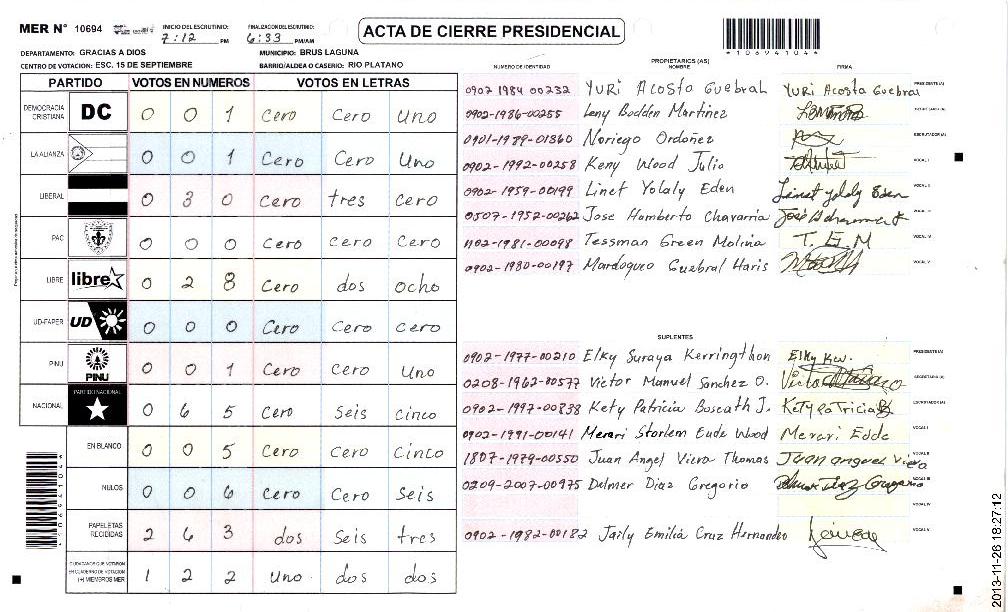 MER N° 10694 INICIO DEL ESCRUTINIO: 7:12 PM FINALIZACION DEL ESCRUTINIO: 6:33 PM/AM
ACTA DE CIERRE PRESIDENCIAL
*10694104*
DEPARTAMENTO: GRACIAS A DIOS MUNICIPIO: BRUS LAGUNA
CENTRO DE VOTACION: ESC. 15 DE SEPTIEMBRE BARRIO/ALDEA O CASERIO: RIO PLATANO
PARTIDO VOTOS EN NUMEROS VOTOS EN LETRAS
DEMOCRACIA CRISTIANA DC 0 0 1 Cero Cero Uno
LA ALIANZA 0 0 1 Cero Cero Uno
LIBERAL 0 3 0 Cero tres cero
PAC 0 0 0 Cero cero Cero
LIBRE libre 0 2 8 Cero dos ocho
UD-FAPER UD 0 0 0 Cero Cero cero
PINU PINU 0 0 1 Cero Cero Uno
NACIONAL PARTIDO NACIONAL 0 6 5 Cero Seis cinco
EN BLANCO 0 0 5 Cero Cero Cinco
NULOS 0 0 6 Cero Cero Seis
PAPELETAS RECIBIDAS 2 6 3 dos Seis tres
CIUDADANOS QUE VOTARON EN CUADERNO DE VOTACION (+) MIEMBROS MER 1 2 2 Uno dos dos
*10694104*
PROPIETARIOS (AS)
NUMERO DE IDENTIDAD NOMBRE FIRMA
0902-1984 00232 YURI Acosta Guebral YURi Acosta Guebral PRESIDENTE(A)
0902-1986-00255 Leny Bodden Martinez SECRETARIO(A)
0901-1989-01360 Noriego Ordoñez ESCRUTADOR(A)
0902-1992-00258 Keny Wood Julio VOCAL I
0902-1959-00199 Linet Yolaly Eden Linet Yolaly Eden VOCAL II
0507-1952-00262 Jose Humberto Chavarria VOCAL III
1102-1981-00098 Tessman Green Molina T. E. M VOCAL IV
0902-1980-00197 Mardoqueo Guebral Haris VOCAL V
SUPLENTES
0902-1977-00210 Elky Suraya Kerringthon Elky Kw. PRESIDENTE(A)
0208-1962-00577 Victor Manuel Sanchez O. SECRETARIO(A)
0902-1997-00838 Kety Patricia Boscath J. Kety Patricia B ESCRUTADOR(A)
0902-1991-00141 Merari Storlem Eude Wood Merari Edde VOCAL I
1807-1979-00550 Juan Angel Viera Thomas Juan angel Viera VOCAL II
0209-2007-00975 Delmer Diaz Gregorio Delmer Diaz Gregorio VOCAL III
VOCAL IV
0902-1982-00182 Jaily Emilia Cruz Hernandez VOCAL V
2013-11-26 18:27:12